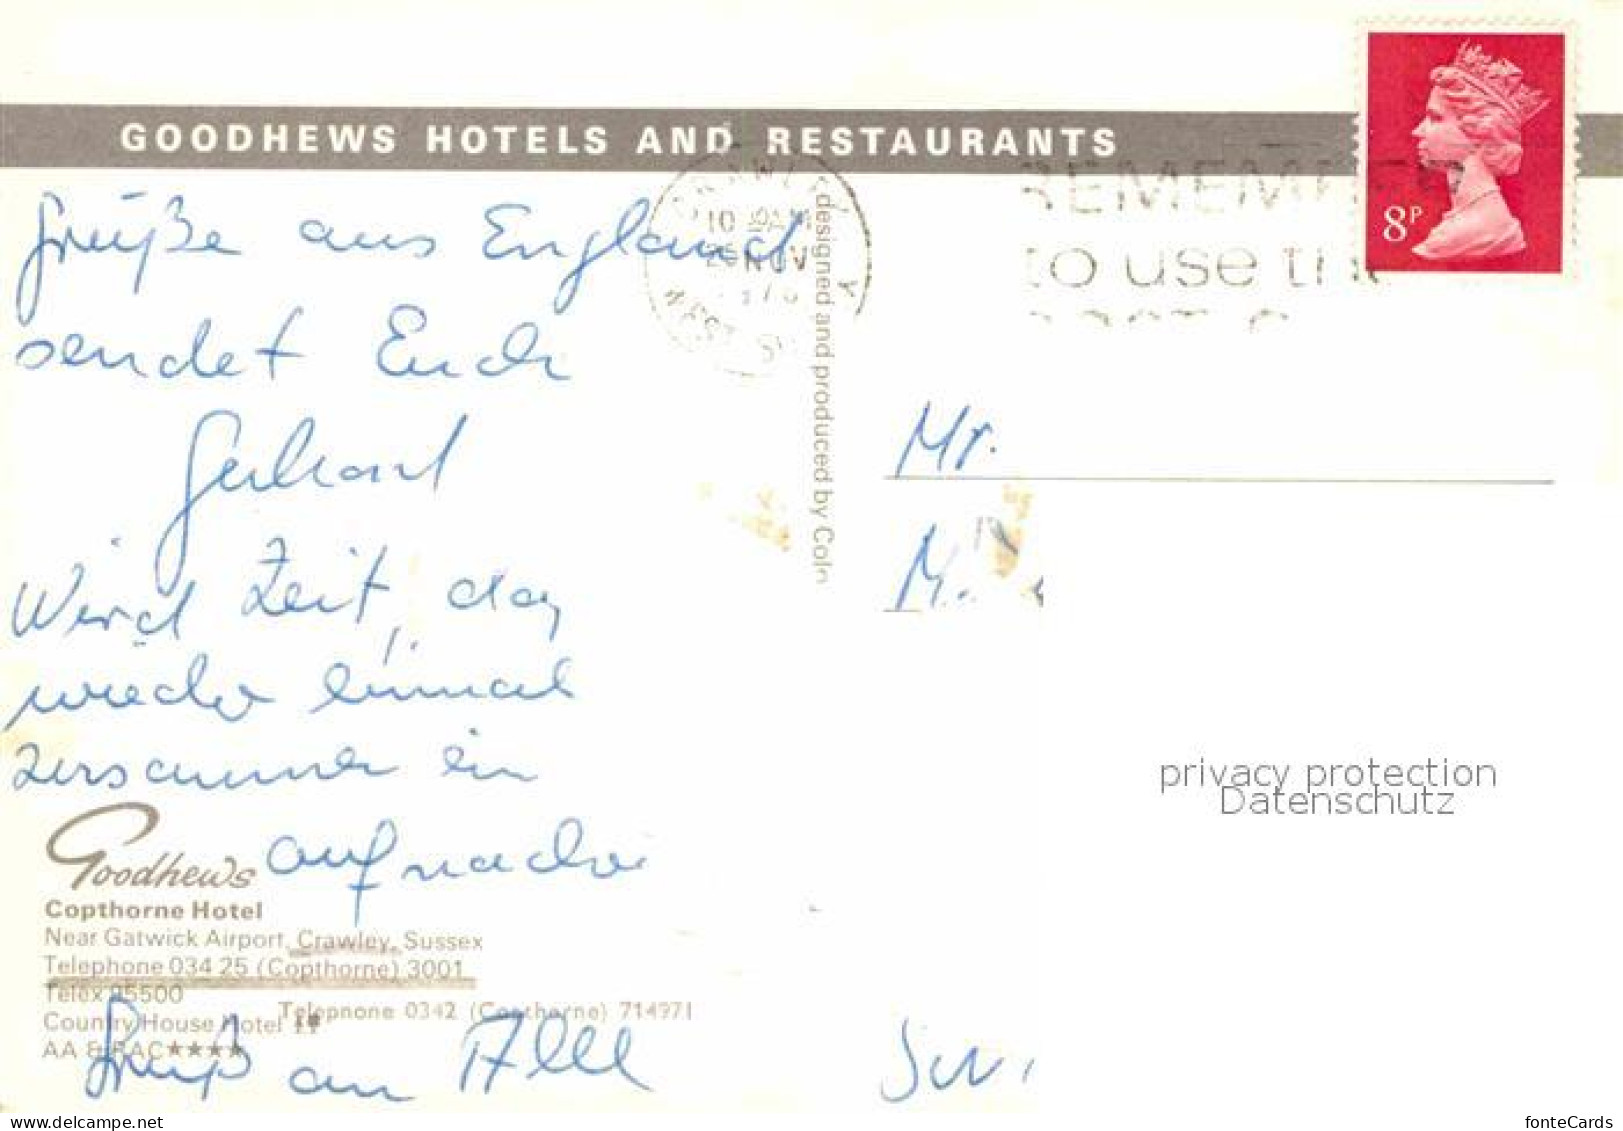 GOODHEWS HOTELS AND RESTAURANTS
CRAWLEY
10 AM
NOV
WEST SU
REMEMBER
to use th
8P
designed and produced by Colo
Grüße aus England
sendet Euch
Gerhard
Wird Zeit, daß
wieder einmal
zusammen ein
aufmachen
Mr.
M.
privacy protection
Datenschutz
Goodhews
Copthorne Hotel
Near Gatwick Airport, Crawley, Sussex
Telephone 034 25 (Copthorne) 3001
Telex 95500
Telephone 0342 (Copthorne) 714971
Country House Hotel
AA & RAC★★★★
Gruß an Alle
fonteCards